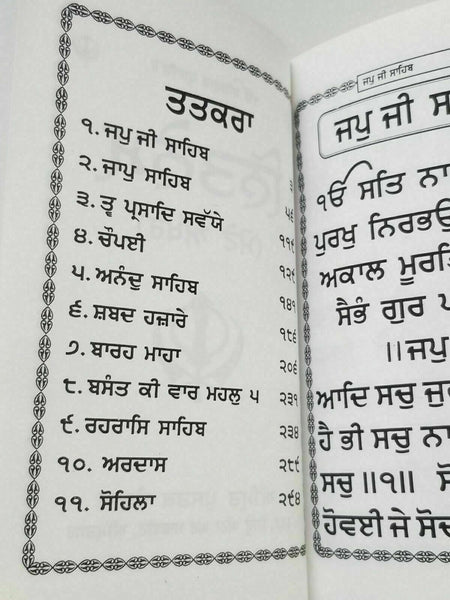 ਤਤਕਰਾ
੧. ਜਪੁ ਜੀ ਸਾਹਿਬ ੩
੨. ਜਾਪੁ ਸਾਹਿਬ
੩. ਤ੍ਵ ਪ੍ਰਸਾਦਿ ਸਵੱਯੇ ੧੧੧
੪. ਚੌਪਈ ੧੨੧
੫. ਅਨੰਦੁ ਸਾਹਿਬ ੧੪੧
੬. ਸ਼ਬਦ ਹਜ਼ਾਰੇ ੧੮੬
੭. ਬਾਰਹ ਮਾਹਾ ੨੦੬
੮. ਬਸੰਤ ਕੀ ਵਾਰ ਮਹਲੁ ੫ ੨੩੧
੯. ਰਹਰਾਸਿ ਸਾਹਿਬ ੨੩੪
੧੦. ਅਰਦਾਸ ੨੮੯
੧੧. ਸੋਹਿਲਾ ੨੯੪
ਜਪੁ ਜੀ ਸਾਹਿਬ
ਜਪੁ ਜੀ ਸ
ੴ ਸਤਿ ਨਾ
ਪੁਰਖੁ ਨਿਰਭਉ
ਅਕਾਲ ਮੂਰਤਿ
ਸੈਭੰ ਗੁਰ ਪ
॥ਜਪੁ
ਆਦਿ ਸਚੁ ਜੁ
ਹੈ ਭੀ ਸਚੁ ਨਾ
ਸਚੁ॥੧॥ ਸੋ
ਹੋਵਈ ਜੇ ਸੋਚ